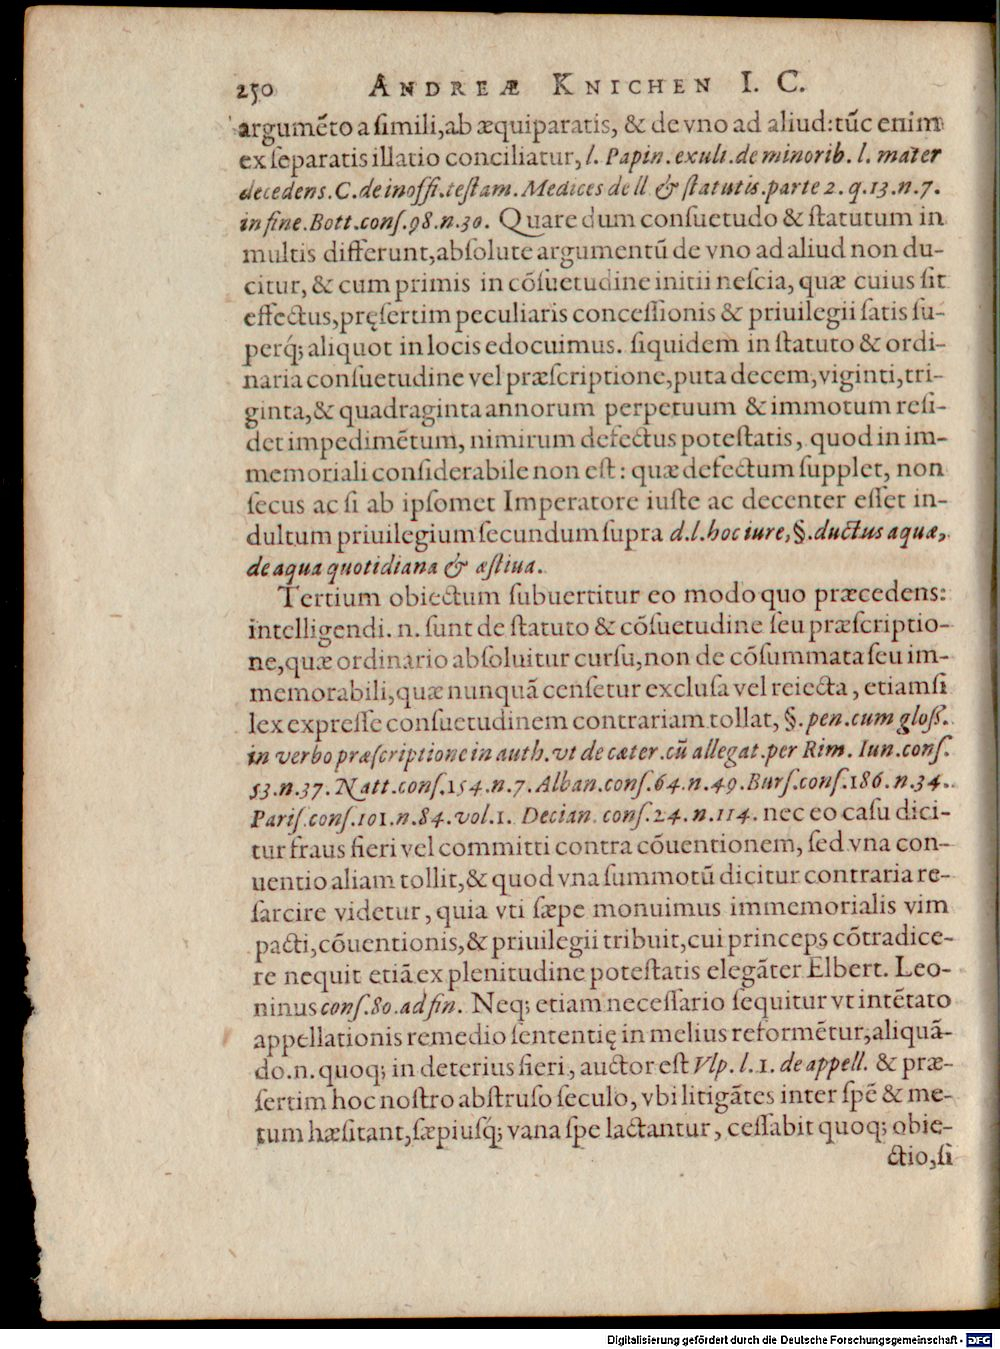 250 ANDREÆ KNICHEN I. C.
argumẽto a ſimili,ab æquiparatis, & de vno ad aliud:tũc enim
ex ſeparatis illatio conciliatur, l. Papin. exuli. de minorib. l. mater
decedens. C. de inoffi. teſtam. Medices de ll. & ſtatutis. parte 2. q. 13. n. 7.
in fine. Bott. conſ. 98. n. 30. Quare dum conſuetudo & ſtatutum in
multis differunt,abſolute argumentũ de vno ad aliud non du-
citur, & cum primis in cõſuetudine initii neſcia, quæ cuius ſit
effectus,pręſertim peculiaris conceſſionis & priuilegii ſatis ſu-
perq́; aliquot in locis edocuimus. ſiquidem in ſtatuto & ordi-
naria conſuetudine vel præſcriptione,puta decem,viginti,tri-
ginta,& quadraginta annorum perpetuum & immotum reſi-
det impedimẽtum, nimirum defectus poteſtatis, quod in im-
memoriali conſiderabile non eſt: quæ defectum ſupplet, non
ſecus ac ſi ab ipſomet Imperatore iuſte ac decenter eſſet in-
dultum priuilegium ſecundum ſupra d. l. hoc iure, §. ductus aquæ,
de aqua quotidiana & æſtiua.
Tertium obiectum ſubuertitur eo modo quo præcedens:
intelligendi. n. ſunt de ſtatuto & cõſuetudine ſeu præſcriptio-
ne,quæ ordinario abſoluitur curſu,non de cõſummata ſeu im-
memorabili,quæ nunquã cenſetur excluſa vel reiecta, etiamſi
lex expreſſe conſuetudinem contrariam tollat, §. pen. cum gloſſ.
in verbo præſcriptione in auth. vt de cæter. cũ allegat. per Rim. Iun. conſ.
53. n. 37. Natt. conſ. 154. n. 7. Alban. conſ. 64. n. 49. Burſ. conſ. 186. n. 34.
Pariſ. conſ. 101. n. 84. vol. 1. Decian. conſ. 24. n. 114. nec eo caſu dici-
tur fraus fieri vel committi contra cõuentionem, ſed vna con-
uentio aliam tollit,& quod vna ſummotũ dicitur contraria re-
ſarcire videtur, quia vti ſæpe monuimus immemorialis vim
pacti,cõuentionis,& priuilegii tribuit,cui princeps cõtradice-
re nequit etiã ex plenitudine poteſtatis elegãter Elbert. Leo-
ninus conſ. 80. ad fin. Neq; etiam neceſſario ſequitur vt intẽtato
appellationis remedio ſententię in melius reformẽtur,aliquã-
do. n. quoq; in deterius fieri, auctor eſt Vlp. l. 1. de appell. & præ-
ſertim hoc noſtro abſtruſo ſeculo, vbi litigãtes inter ſpẽ & me-
tum hæſitant,ſæpiuſq́; vana ſpe lactantur, ceſſabit quoq; obie-
ctio,ſi
Digitalisierung gefördert durch die Deutsche Forschungsgemeinschaft - DFG